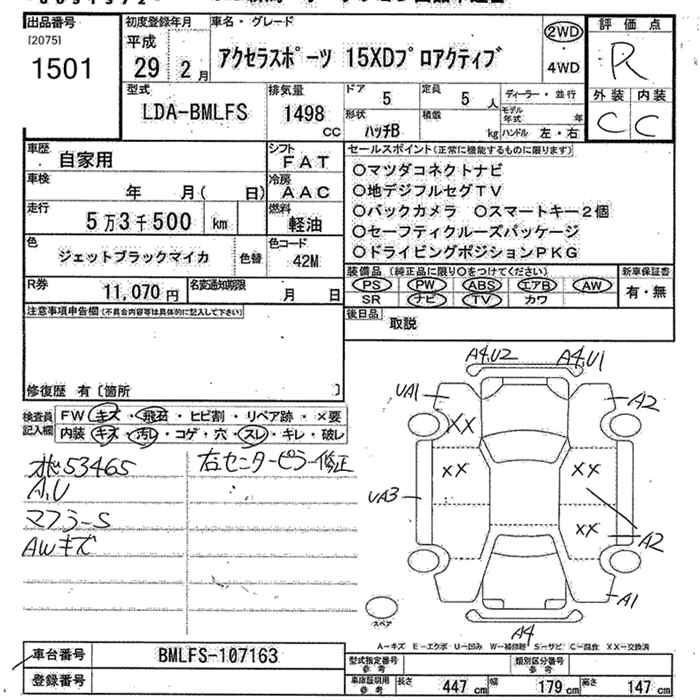 出品番号
[2075]
1501
初度登録年月
平成
29年 2月
車名・グレード
アクセラスポーツ 15XDプロアクティブ
2WD
・
4WD
評価点
R
外装 内装
C C
型式
LDA-BMLFS
排気量
1498
CC
ドア
5
定員
5 人
形状
ハッチB
積載
kg
ディーラー・並行
モデル年式 年
ハンドル 左・右
車歴
自家用
シフト
FAT
車検
年 月( 日)
冷房
AAC
走行
5万3千500 km
燃料
軽油
色
ジェットブラックマイカ
色替
色コード
42M
R券
11,070 円
名変通知期限
月 日
セールスポイント(正常に機能するものに限ります)
○マツダコネクトナビ
○地デジフルセグTV
○バックカメラ ○スマートキー2個
○セーフティクルーズパッケージ
○ドライビングポジションPKG
装備品(純正品に限り○をつけてください)
PS PW ABS エアB AW
SR ナビ TV カワ
新車保証書
有・無
後日品
取説
注意事項申告欄(不具合内容等は具体的に記入して下さい)
修復歴 有〔箇所 〕
検査員記入欄
FW キズ・飛石・ヒビ割・リペア跡・×要
内装 キズ・汚レ・コゲ・穴・スレ・キレ・破レ
53465
A,U
マフラーS
AWキズ
右センターピラー修正
A4,U2 A4,U1
UA1 A2
XX
XX XX
UA3
XX
A2
A1
A4
スペア
A−キズ E−エクボ U−凹み W−補修跡 S−サビ C−腐食 XX−交換済
車台番号
BMLFS-107163
登録番号
型式指定番号
参考
類別区分番号
参考
車庫証明用
参考
長さ 447 cm
幅 179 cm
高さ 147 cm